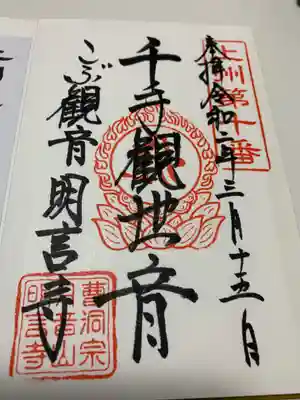 上州第十番
奉拝 令和二年三月十五日
千手観世音
こぶ観音 明言寺
曹洞宗
音山
明言寺